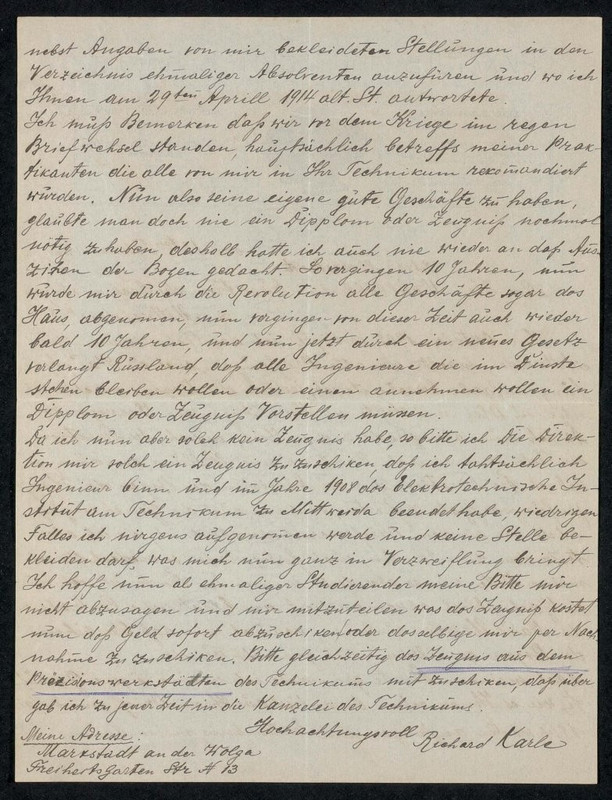 nebst Angaben von mir bekleideten Stellungen in den
Verzeichnis ehmaliger Absolventen anzufüren und wo ich
Ihnen am 29ten Aprill 1914 alt. St. antwortete.
Ich muß Bemerken daß wir vor dem Kriege im regen
Briefwechsel standen, hauptsächlich betreffs meiner Prak-
tikanten die alle von mir in Ihr Technikum rekomandiert
würden. Nun also seine eigene gute Geschäfte zu haben,
glaubte man doch nie ein Dipplom oder Zeugniß nochmal
nötig zu haben deshalb hatte ich auch nie wieder an daß Aus-
ziken der Bogen gedacht. So vergingen 10 Jahren, nun
wurde mir durch die Revolution alle Geschäfte sogar das
Haus, abgenomen, nun vergingen von dieser Zeit auch wieder
bald 10 Jahren, und nun jetzt durch ein neues Gesetz
verlangt Russland, daß alle Ingenieure die im Dinste
stehen bleiben wollen oder einen annehmen wollen ein
Dipplom oder Zeugniß Vorstellen müssen.
Da ich nun aber solch kein Zeugnis habe, so bitte ich Die Direk-
tion mir solch ein Zeugnis zu zuschiken, daß ich tahtsächlich
Ingenieur binn und im Jahre 1908 das Elektrotechnische In-
stitut am Technikum zu Mittweida beendet habe, wiedrigen
Falles ich nirgens aufgenomen werde und keine Stelle be-
kleiden darf, was mich nun ganz in Verzweiflung bringt
Ich hoffe nun als ehmaliger Studierender meine Bitte mir
nicht abzusagen und mir mitzuteilen was das Zeugniß kostet
num daß Geld sofort abzuschiken oder dasselbige mir per Nach-
nahme zu zuschiken. Bitte gleichzeitig das Zeugnis aus dem
Präzisionswerkstädten des Technikums mit zuschiken, daß über
gab ich zu jener Zeit in die Kanzelei des Technikums.
Hochachtungsvoll
Richard Karle
Meine Adresse:
Markstadt an der Wolga
Freiheitsgarten Str № 13